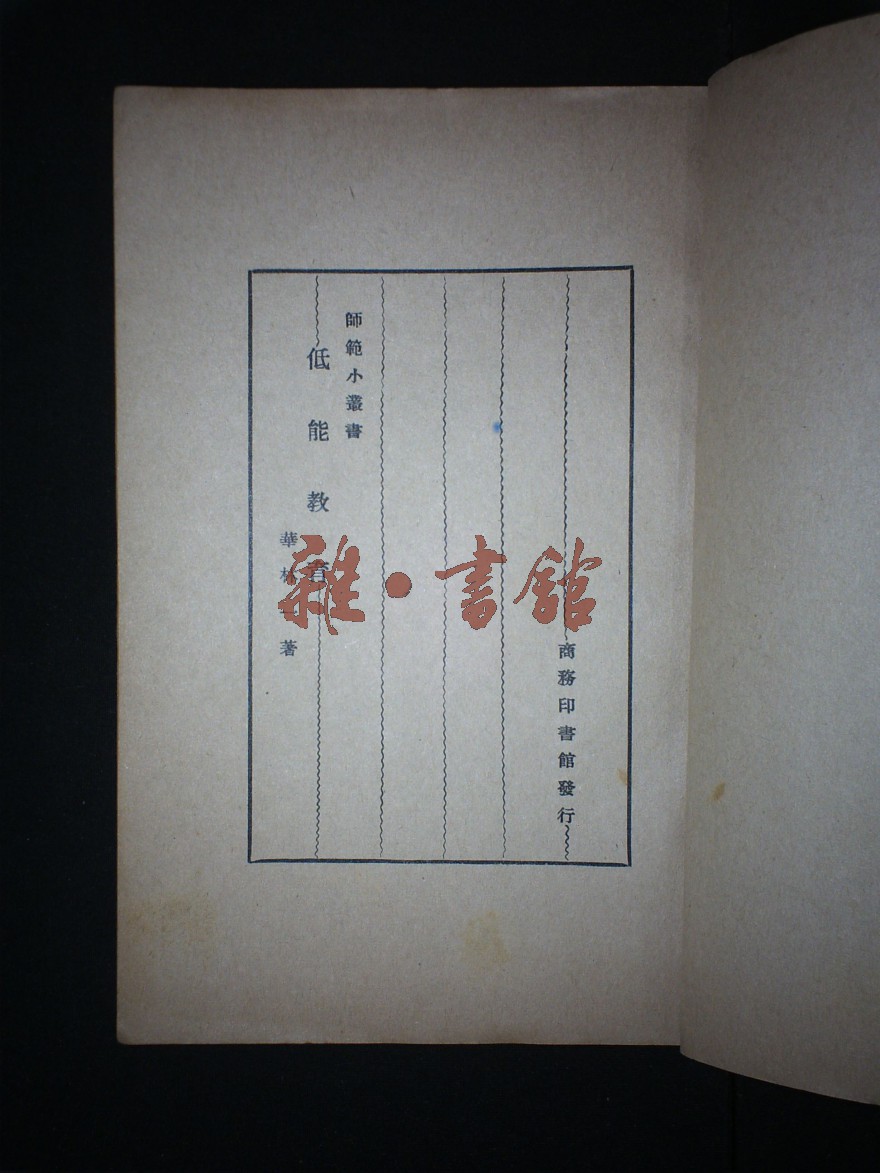 商務印書館發行
師範小叢書
低能教育
華林一著
雜·書館